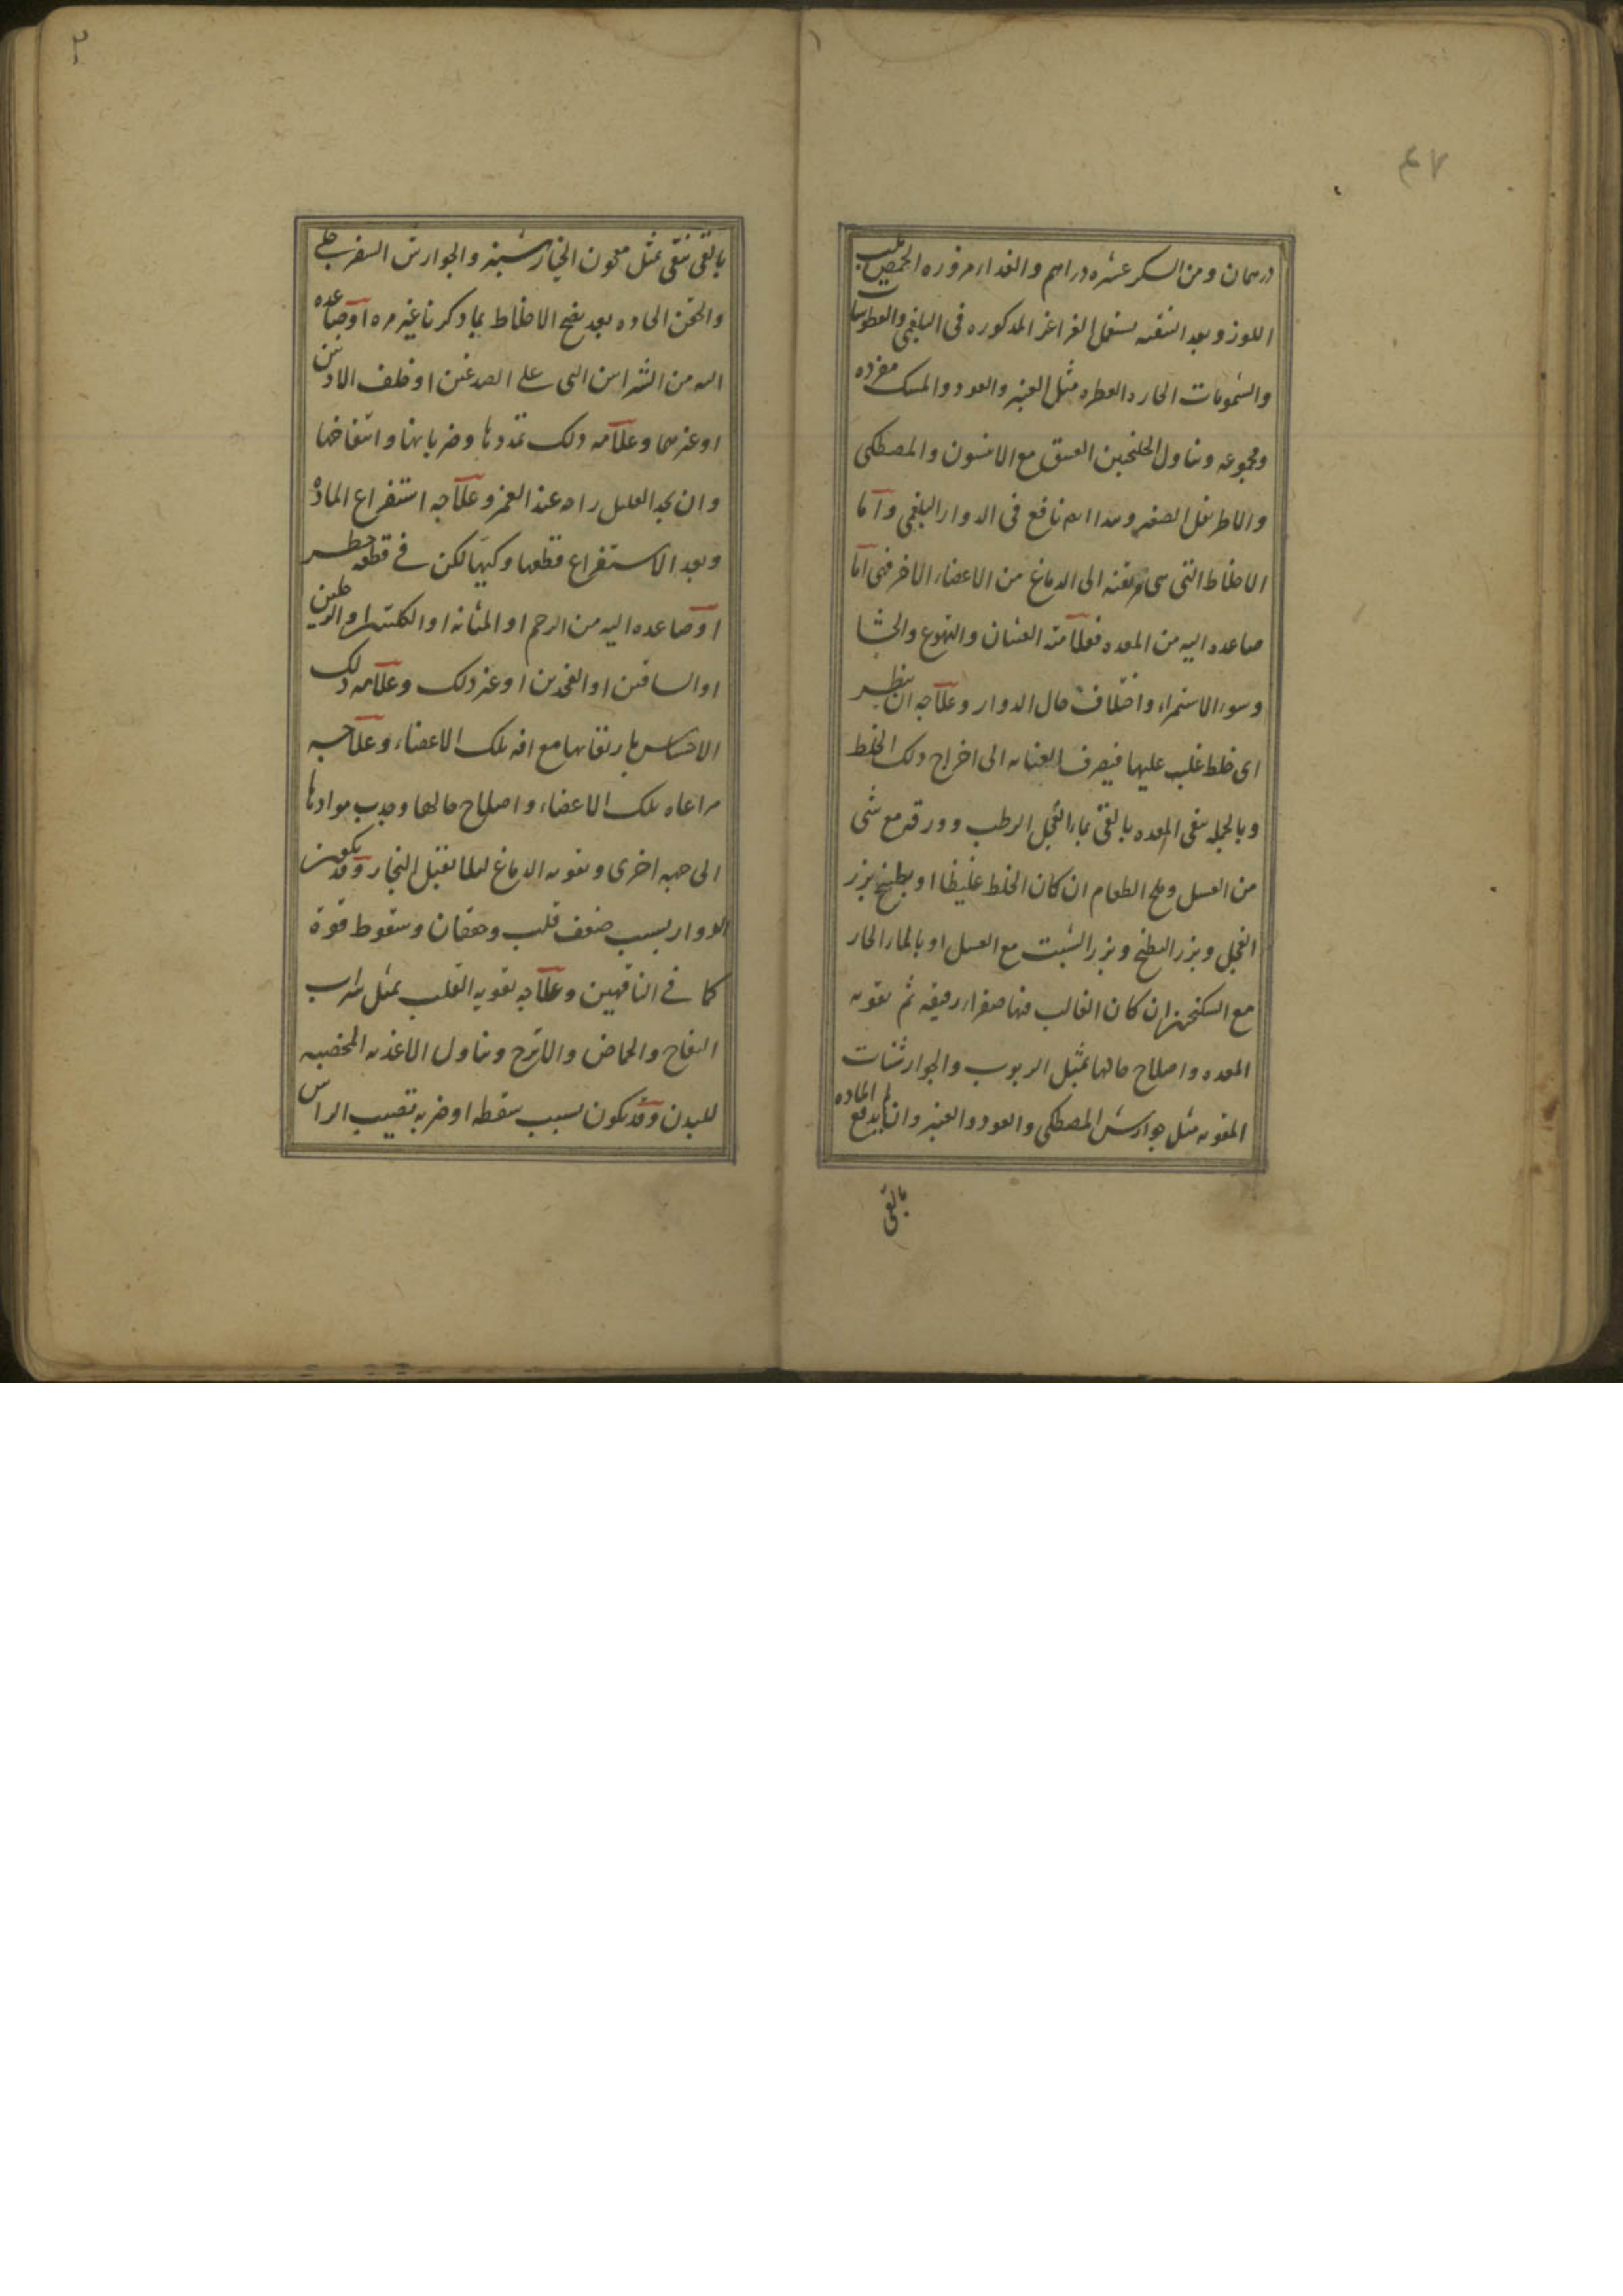 ٤٧
درهمان ومن السكر عشره دراهم والغداء مزوره الحمص بلب
اللوز وبعد التنقيه يستعمل الغراغر المذكوره فى البلغمى والعطوسات
والشمومات الحاره العطره مثل العنبر والعود والمسك مفرده
ومجموعه وتناول الجلنجبين العتيق مع الانيسون والمصطكى
والاطريفل الصغير وهذا نافع فى الدوار البلغمى واما
الاخلاط التى هى مرتقيه الى الدماغ من الاعضاء الاخر فهى اما
صاعده اليه من المعده فعلامته الغثيان والتهوع والجشا
وسوء الاستمراء واختلاف حال الدوار وعلاجه ان ينظر
اى خلط غلب عليها فيصرف العنايه الى اخراج ذلك الخلط
وبالجمله ينقى المعده بالقئ بماء الفجل الرطب وورقه مع شى
من العسل وملح الطعام ان كان الخلط غليظا او بطبيخ بزر
الفجل وبزر البطيخ وبزر الشبت مع العسل او بالماء الحار
مع السكنجبين ان كان الغالب فيها صفراء رقيقه ثم تقويه
المعده واصلاح حالها بمثل الربوب والجوارشنات
المقويه مثل جوارش المصطكى والعود والعنبر وان لم يندفع الماده
بالقى
٢
بالقى ينقى بمثل معجون الخيارشنبر والجوارش السفرجلى
والحقن الحاده بعد نضج الاخلاط بما ذكرنا غير مره او صاعده
اليه من الشرايين التى على الصدغين او خلف الاذنين
او غيرهما وعلامه ذلك تمددها وضربانها وانتفاخها
وان يجد العليل راحه عند الغمز وعلاجه استفراغ الماده
وبعد الاستفراغ قطعها وكيها لكن فى قطعه خطر
او صاعده اليه من الرحم او المثانه او الكليتين او الرجلين
او الساقين او الفخذين او غير ذلك وعلامه ذلك
الاحساس بارتقائها مع افه تلك الاعضاء وعلاجه
مراعاه تلك الاعضاء واصلاح حالها وجذب موادها
الى جهه اخرى وتقويه الدماغ ليلا يقبل البخار وقد يكون
الدوار بسبب ضعف قلب وخفقان وسقوط قوة
كما فى الناقهين وعلاجه تقويه القلب بمثل شراب
التفاح والحماض والاترج وتناول الاغذيه المخصبه
للبدن وقد يكون بسبب سقطه او ضربه تصيب الراس